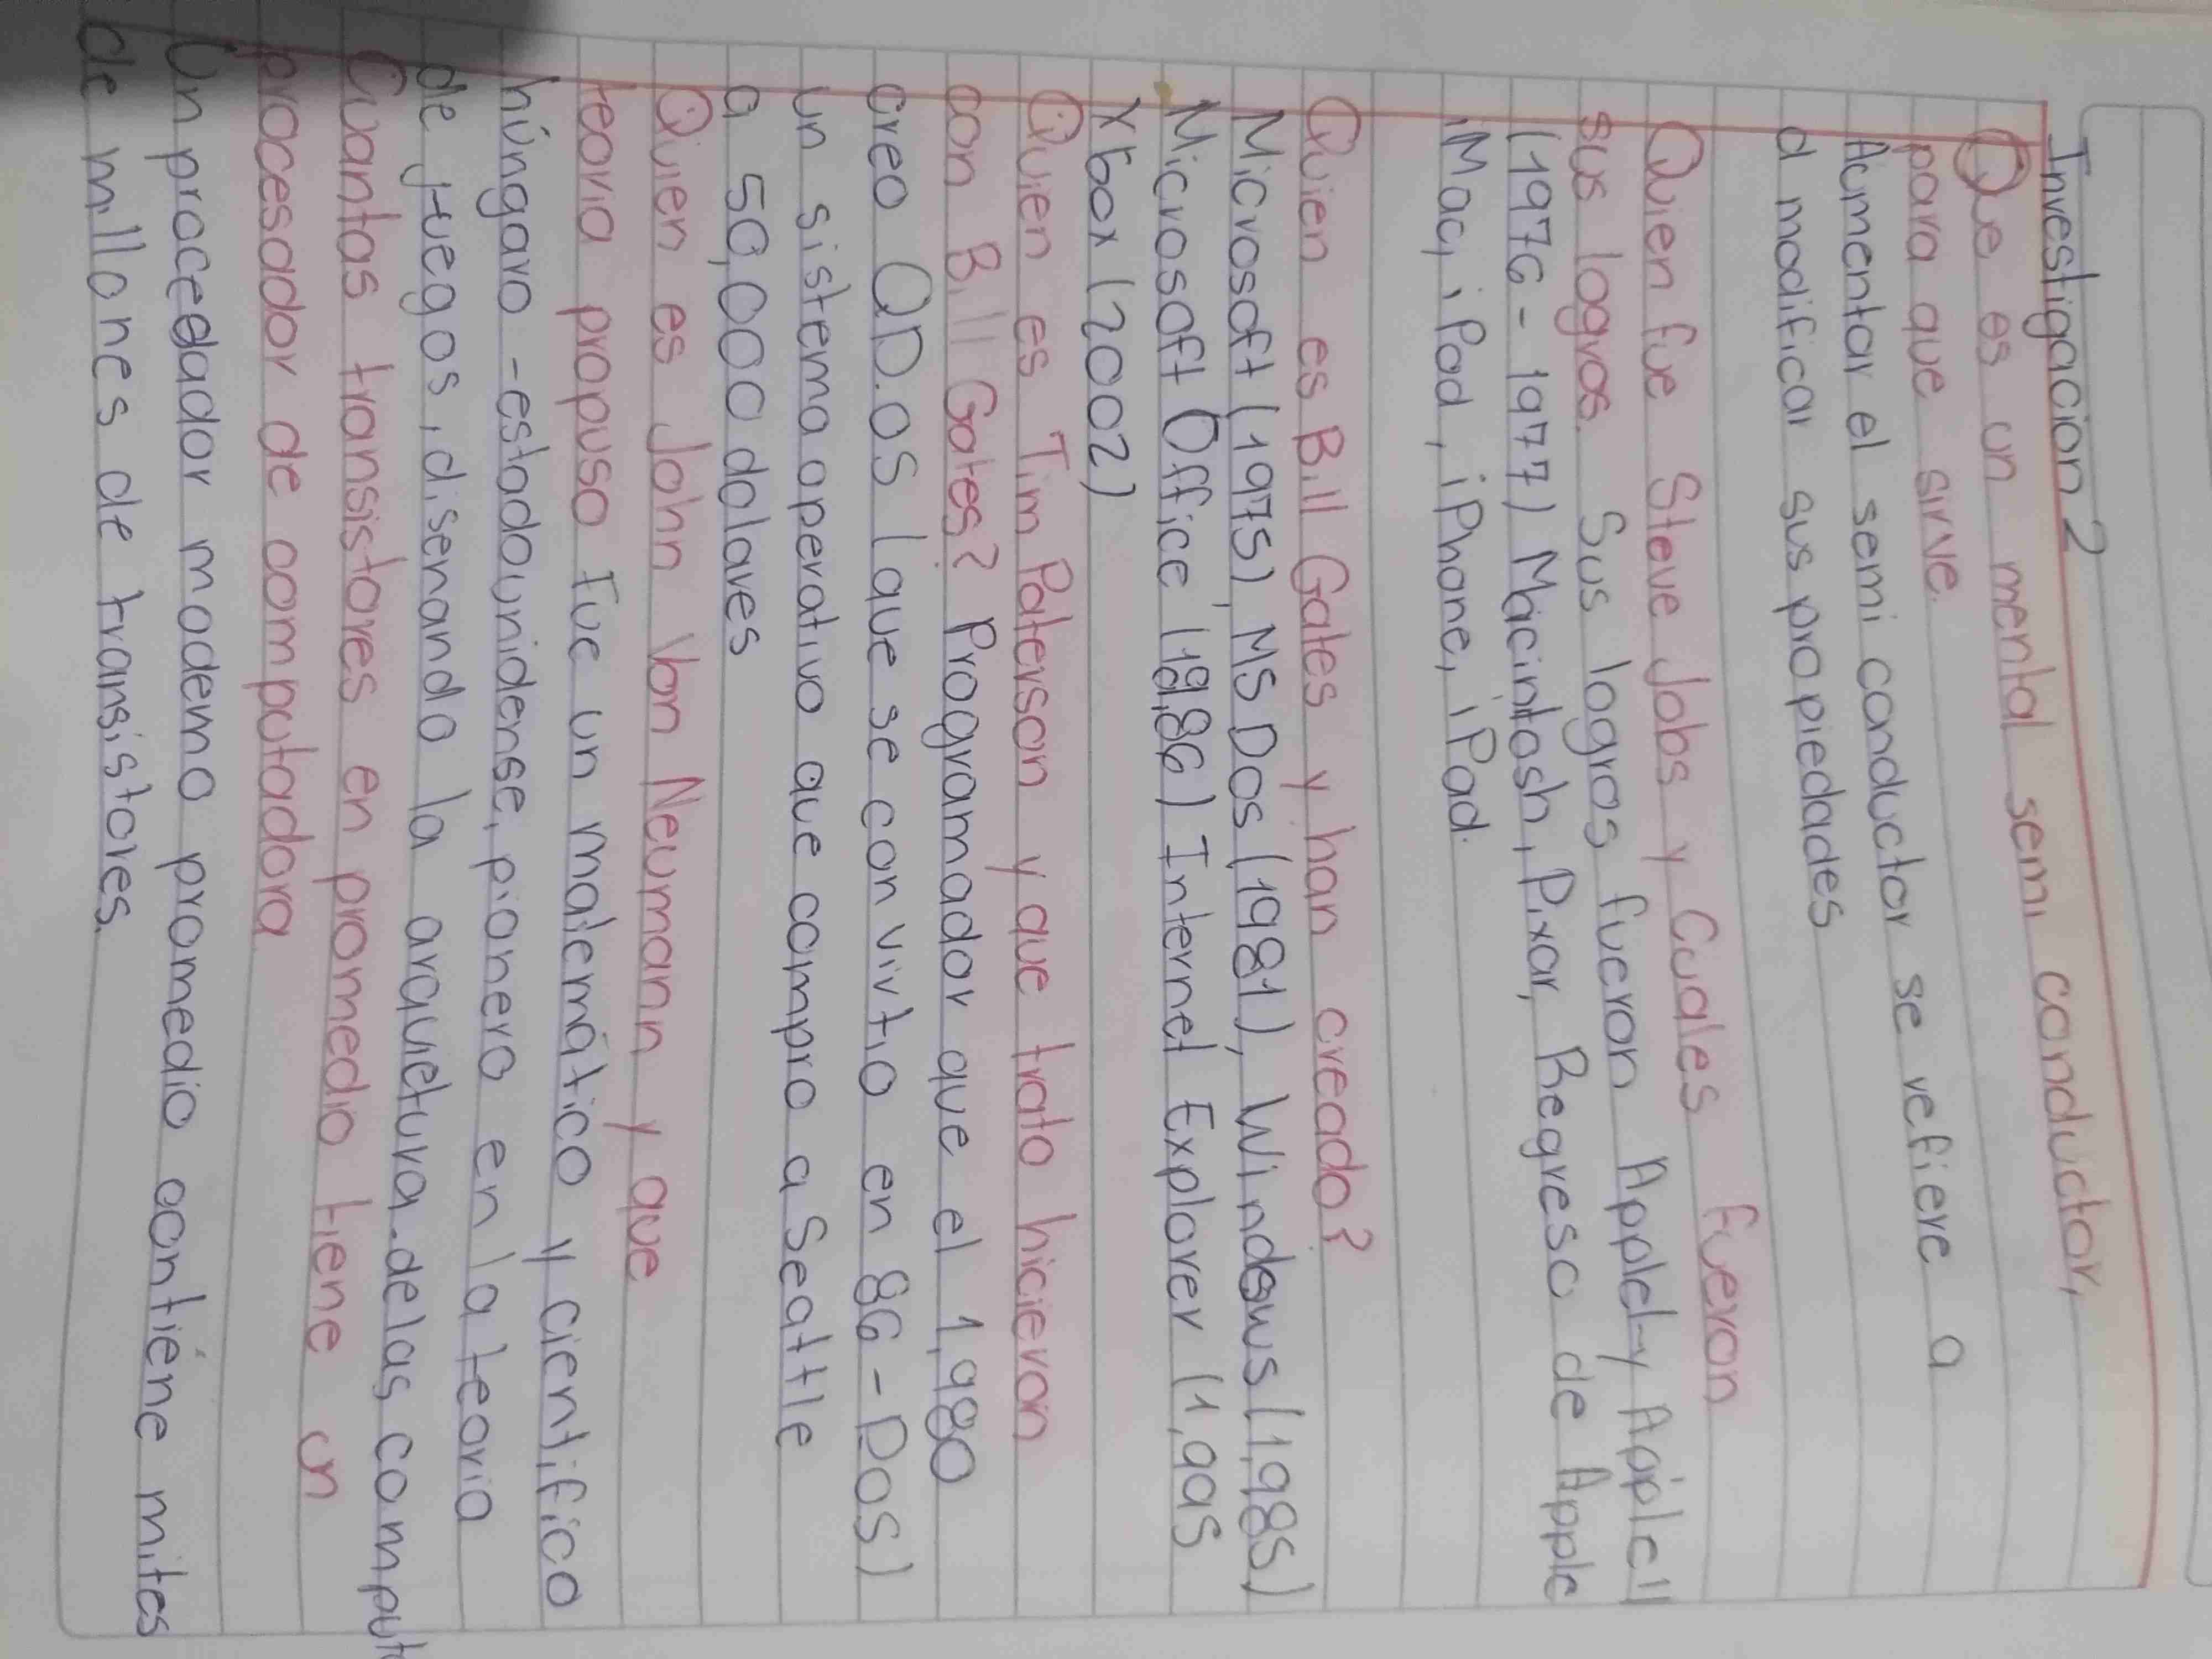 Investigacion 2
Que es un mental semi conductor,
para que sirve.
Aumentar el semi conductor se refiere a
d modificar sus propiedades
Quien fue Steve Jobs y Cuales fueron
sus logros. Sus logros fueron Apple I y Apple II
(1976-1977) Macintosh, Pixar, Regreso de Apple
iMac, iPod, iPhone, iPad.
Quien es Bill Gates y han creado?
Microsoft (1975), MS Dos (1981), Windows (1,985)
Microsoft Office (19,86) Internet Explorer (1,995
Xbox (2002)
Quien es Tim Paterson y que trato hicieron
con Bill Gates? Programador que el 1,980
creo QD.OS (que se con virtio en 86-DOS)
un sistema operativo que compro a Seattle
a 50,000 dolares
Quien es John Von Neumann y que
teoria propuso Fue un matemático y cientifico
húngaro-estadounidense, pionero en la teoria
de juegos, disenando la arquietura de las comput
Cuantos transistores en promedio tiene un
procesador de computadora
Un procedador moderno promedio contiene mites
de millones de transistores.